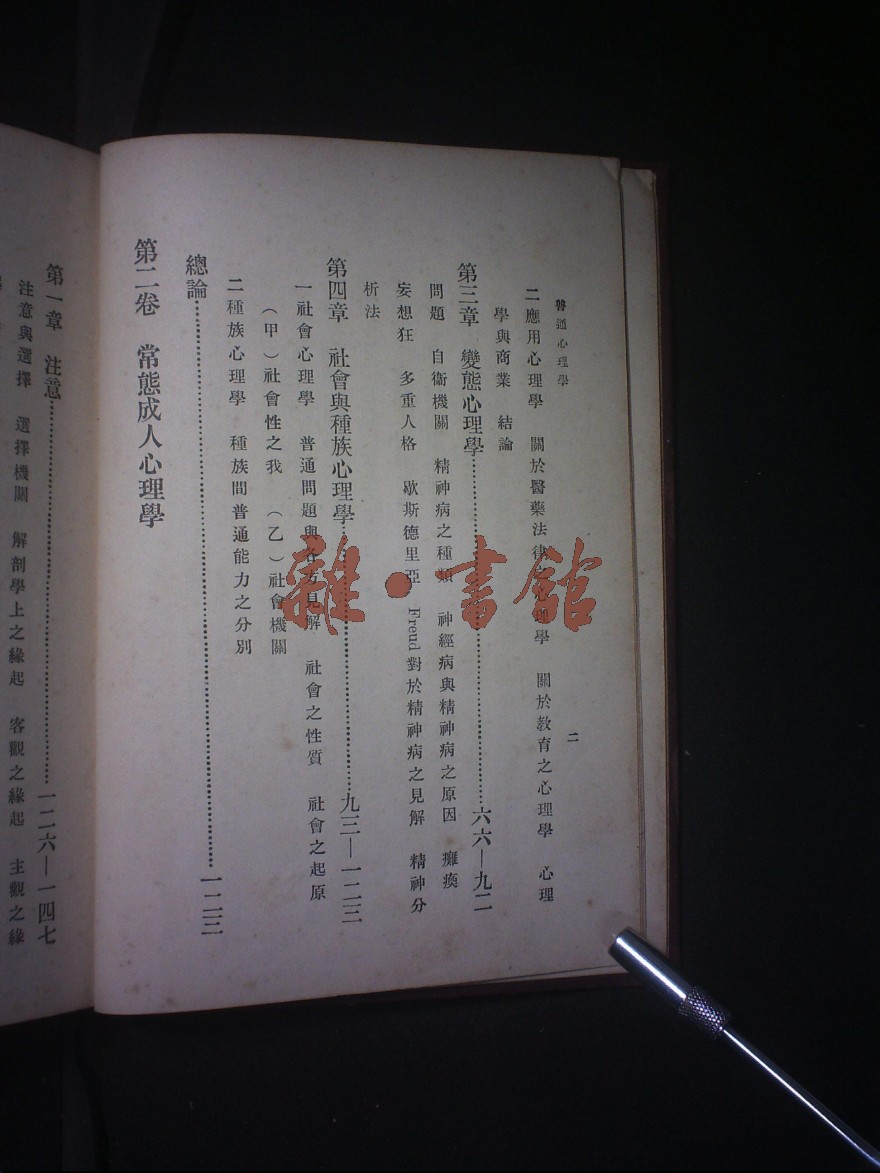 普通心理學
二
二 應用心理學 關於醫藥法律之心理學 關於教育之心理學 心理
學與商業 結論
第三章 變態心理學……六六—九二
問題 自衛機關 精神病之種類 神經病與精神病之原因 癱瘓
妄想狂 多重人格 歇斯德里亞 Freud對於精神病之見解 精神分
析法
第四章 社會與種族心理學……九三—一二三
一 社會心理學 普通問題與各方見解 社會之性質 社會之起原
（甲）社會性之我 （乙）社會機關
二 種族心理學 種族間普通能力之分別
總論……一二三
第二卷 常態成人心理學
第一章 注意……一二六—一四七
注意與選擇 選擇機關 解剖學上之緣起 客觀之緣起 主觀之緣
雜·書館